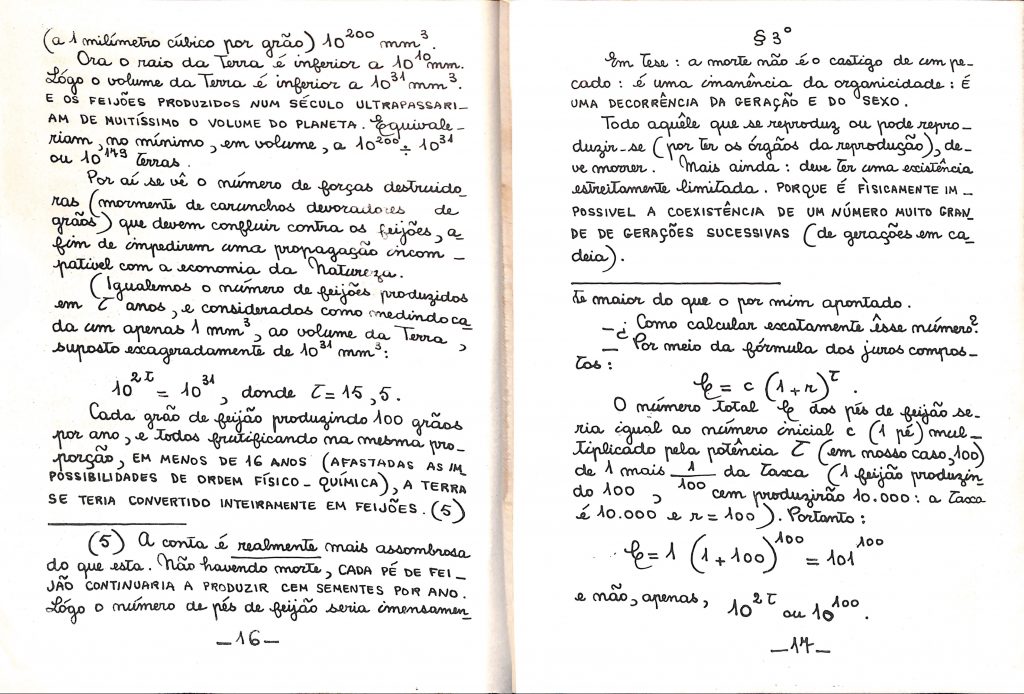 (a 1 milímetro cúbico por grão) 10²⁰⁰ mm³.
Ora o raio da Terra é inferior a 10¹⁰ mm.
Lógo o volume da Terra é inferior a 10³¹ mm³.
E OS FEIJÕES PRODUZIDOS NUM SÉCULO ULTRAPASSARI-
AM DE MUITÍSSIMO O VOLUME DO PLANETA. Equivale-
riam, no mínimo, em volume, a 10²⁰⁰ ÷ 10³¹
ou 10¹⁷⁹ terras.
Por aí se vê o número de forças destruido-
ras (mormente de carunchos devoradores de
grãos) que devem confluir contra os feijões, a-
fim de impedirem uma propagação incom-
patível com a economia da Natureza.
(Igualemos o número de feijões produzidos
em τ anos, e considerados como medindo ca-
da um apenas 1 mm³, ao volume da Terra,
suposto exageradamente de 10³¹ mm³:
10²τ = 10³¹, donde τ = 15,5.
Cada grão de feijão produzindo 100 grãos
por ano, e todos frutificando na mesma pro-
porção, EM MENOS DE 16 ANOS (AFASTADAS AS IM-
POSSIBILIDADES DE ORDEM FÍSICO-QUÍMICA), A TERRA
SE TERIA CONVERTIDO INTEIRAMENTE EM FEIJÕES. (5)
(5) A conta é realmente mais assombrosa
do que esta. Não havendo morte, CADA PÉ DE FEI-
JÃO CONTINUARIA A PRODUZIR CEM SEMENTES POR ANO.
Lógo o número de pés de feijão seria imensamen-
_16_
§ 3º
Em tese: a morte não é o castigo de um pe-
cado: é uma imanência da organicidade: É
UMA DECORRÊNCIA DA GERAÇÃO E DO SEXO.
Todo aquêle que se reproduz ou pode repro-
duzir-se (por ter os órgãos da reprodução), de-
ve morrer. Mais ainda: deve ter uma existência
estreitamente limitada. PORQUE É FÌSICAMENTE IM-
POSSIVEL A COEXISTÊNCIA DE UM NÚMERO MUITO GRAN-
DE DE GERAÇÕES SUCESSIVAS (de gerações em ca-
deia).
te maior do que o por mim apontado.
_ ¿ Como calcular exatamente êsse número?
_ Por meio da fórmula dos juros compos-
tos:
C = c (1 + r)τ.
O número total C dos pés de feijão se-
ria igual ao número inicial c (1 pé) mul-
tiplicado pela potência τ (em nosso caso, 100)
de 1 mais 1/100 da taxa (1 feijão produzin-
do 100, cem produzirão 10.000: a taxa
é 10.000 e r = 100). Portanto:
C = 1 (1 + 100)¹⁰⁰ = 101¹⁰⁰
e não, apenas, 10²τ ou 10¹⁰⁰.
_17_